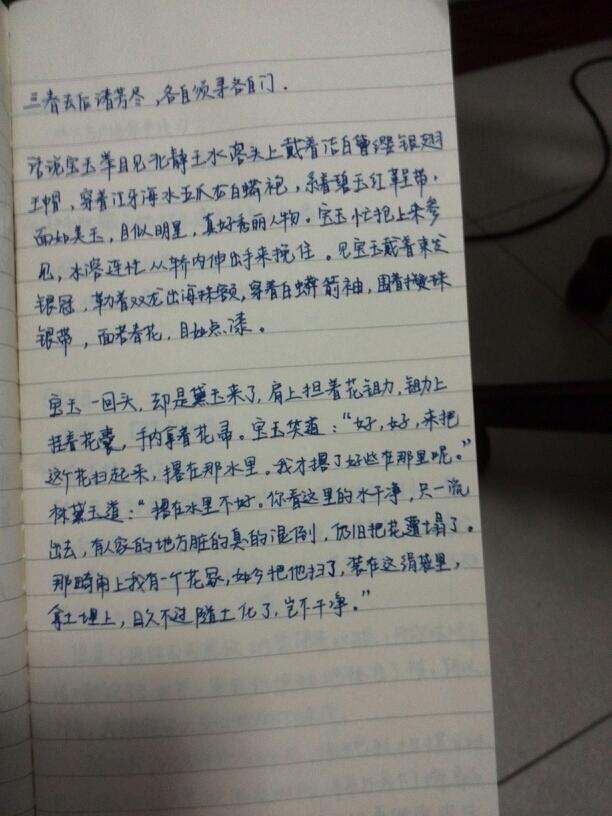 三春去后诸芳尽，各自须寻各自门．
话说宝玉举目见北静王水溶头上戴着洁白簪缨银翅
王帽，穿着江牙海水五爪龙白蟒袍，系着碧玉红鞓带，
面如美玉，目似明星，真好秀丽人物。宝玉忙抢上来参
见，水溶连忙从轿内伸出手来挽住。见宝玉戴着束发
银冠，勒着双龙出海抹额，穿着白蟒箭袖，围着攒珠
银带，面若春花，目如点漆。
宝玉一回头，却是黛玉来了，肩上担着花锄，锄上
挂着花囊，手内拿着花帚。宝玉笑道：“好，好，来把
这个花扫起来，撂在那水里。我才撂了好些在那里呢。”
林黛玉道：“撂在水里不好。你看这里的水干净，只一流
出去，有人家的地方脏的臭的混倒，仍旧把花遭塌了。
那畸角上我有一个花冢，如今把他扫了，装在这绢袋里，
拿土埋上，日久不过随土化了，岂不干净。”